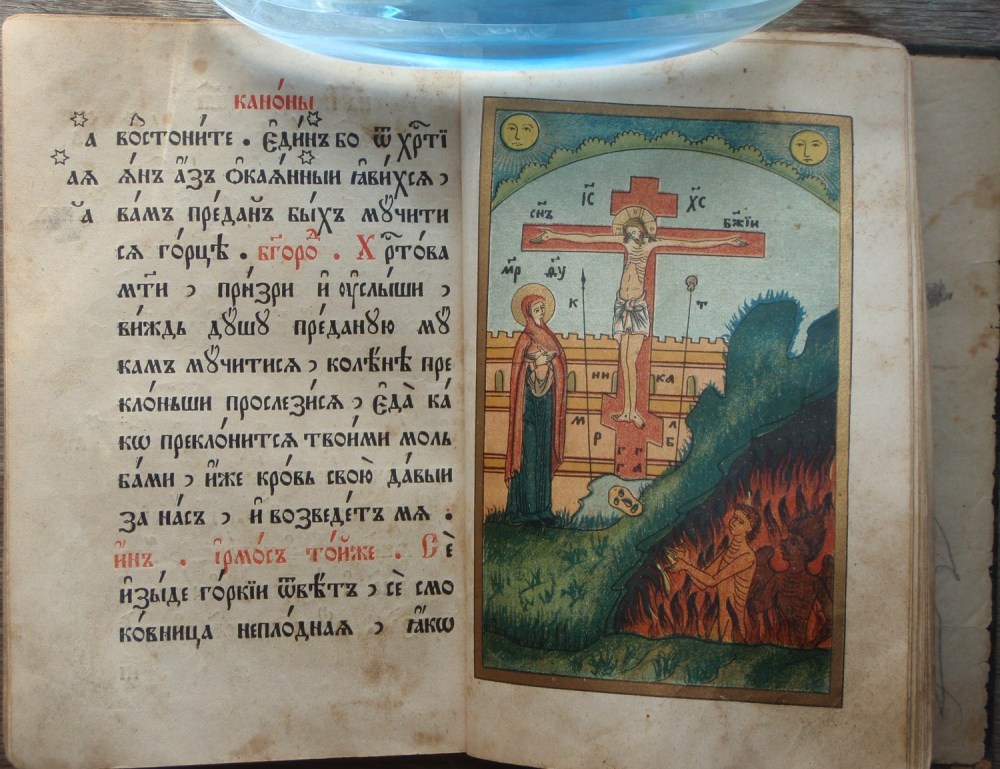 кано́ны
а восто́ните . Є҆ди́нъ бо ѿ хр҇тї
ая я́нъ а҆́зъ ѻ҆кая́нныи ꙗ҆ви́хся ,
а ва́мъ пре́данъ бы́хъ мꙋ́чити
ся го́рцѣ . бг҃оро́д . Хр҇то́ва
мт҃и , при́зри и҆ ᲂу҆слы́ши ,
ви́ждь дꙋ́шꙋ пре́данꙋю мꙋ́
камъ мꙋ́читися , колѣ́нѣ пре
кло́ньши прослези́ся , Є҆да̀ ка́
кѡ преклони́тся твои́ми моль
ба́ми , и҆́же кро́вь свою̀ да́выи
за на́съ , и҆ возведе́тъ мя .
и҆́нъ . і҆рмо́съ то́йже . Сѐ
и҆зы́де го́ркїи ѿвѣ́тъ , сѐ смо
ко́вница непло́дная , ꙗ҆́кѡ
і҃с х҃с
сн҃ъ бж҃їи
мр҃ ѳу҃
к т
ни ка
м л
р б
г г
г а